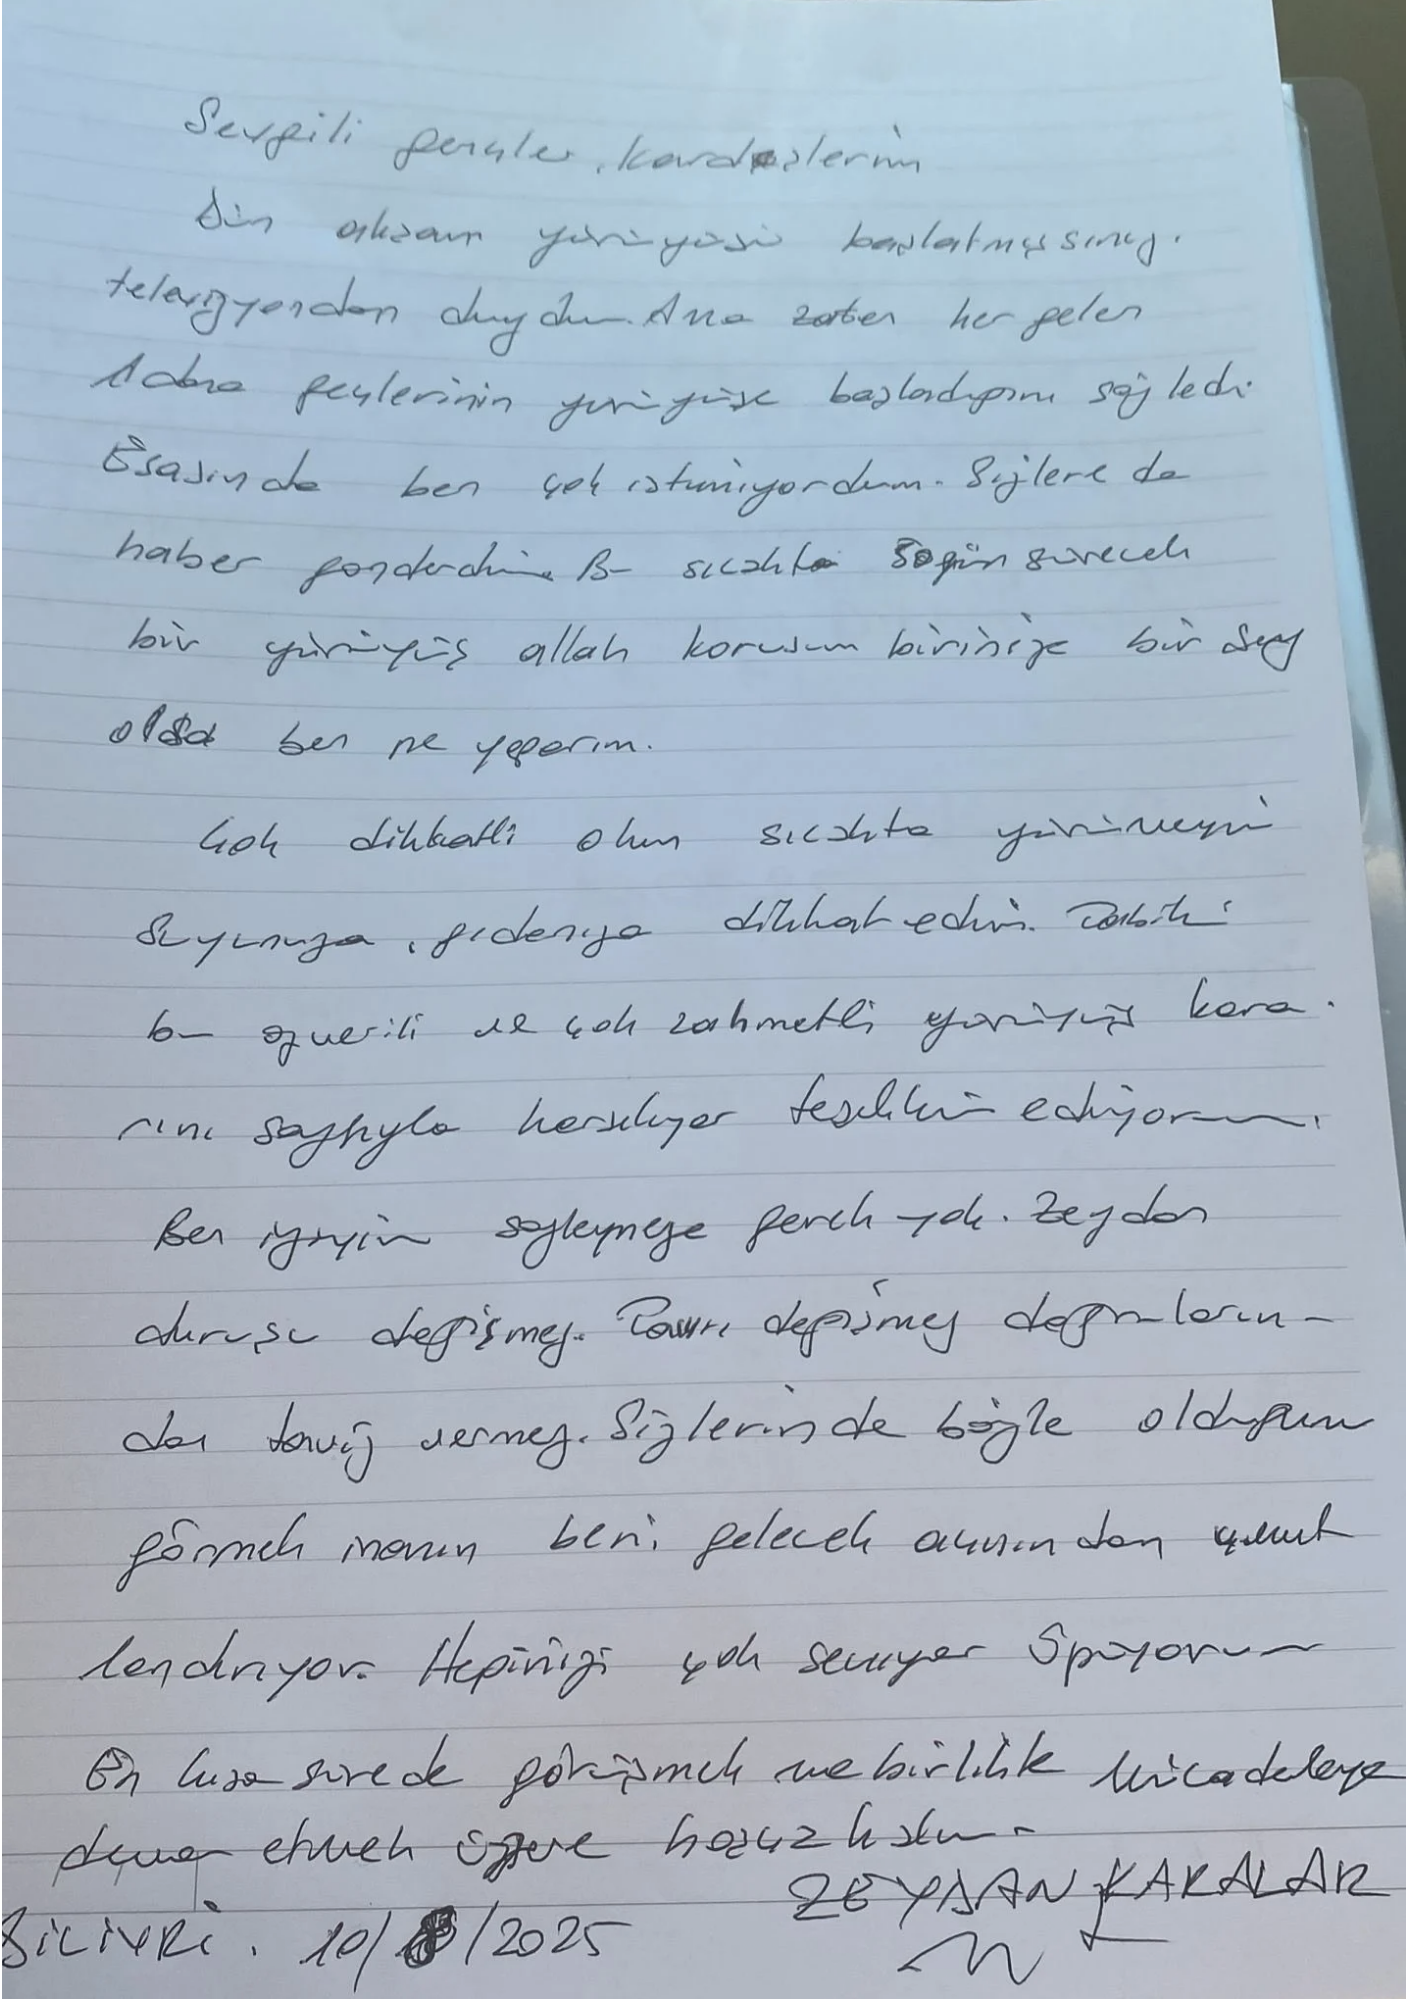 Sevgili gençler, kardeşlerim
Dün akşam yürüyüşü başlatmışsınız.
televizyondan duydum. Ama zaten her gelen
Adana gençlerinin yürüyüşe başladığını söyledi.
Esasında ben çok istemiyordum. Sizlere de
haber gönderdim. Bu sıcakta gün sürecek
bir yürüyüş allah korusun birinize bir şey
olsa ben ne yaparım.
Çok dikkatli olun sıcakta yürümeyin
Suyunuza, gıdanıza dikkat edin. Tabiki
bu özverili ve çok zahmetli yürüyüş kara-
rını saygıyla karşılıyor teşekkür ediyorum.
Ben iyiyim söylemeye gerek yok. Zeydan
duruşu değişmez. Tavrı değişmez doğruların-
dan taviz vermez. Sizlerinde böyle olduğunu
görmek inanın beni gelecek açısından çok umut
lendiriyor. Hepinizi çok seviyor öpüyorum
En kısa sürede görüşmek ve birlikte mücadeleye
devam etmek üzere hoşça kalın.
ZEYDAN KARALAR
SİLİVRİ. 10/8/2025